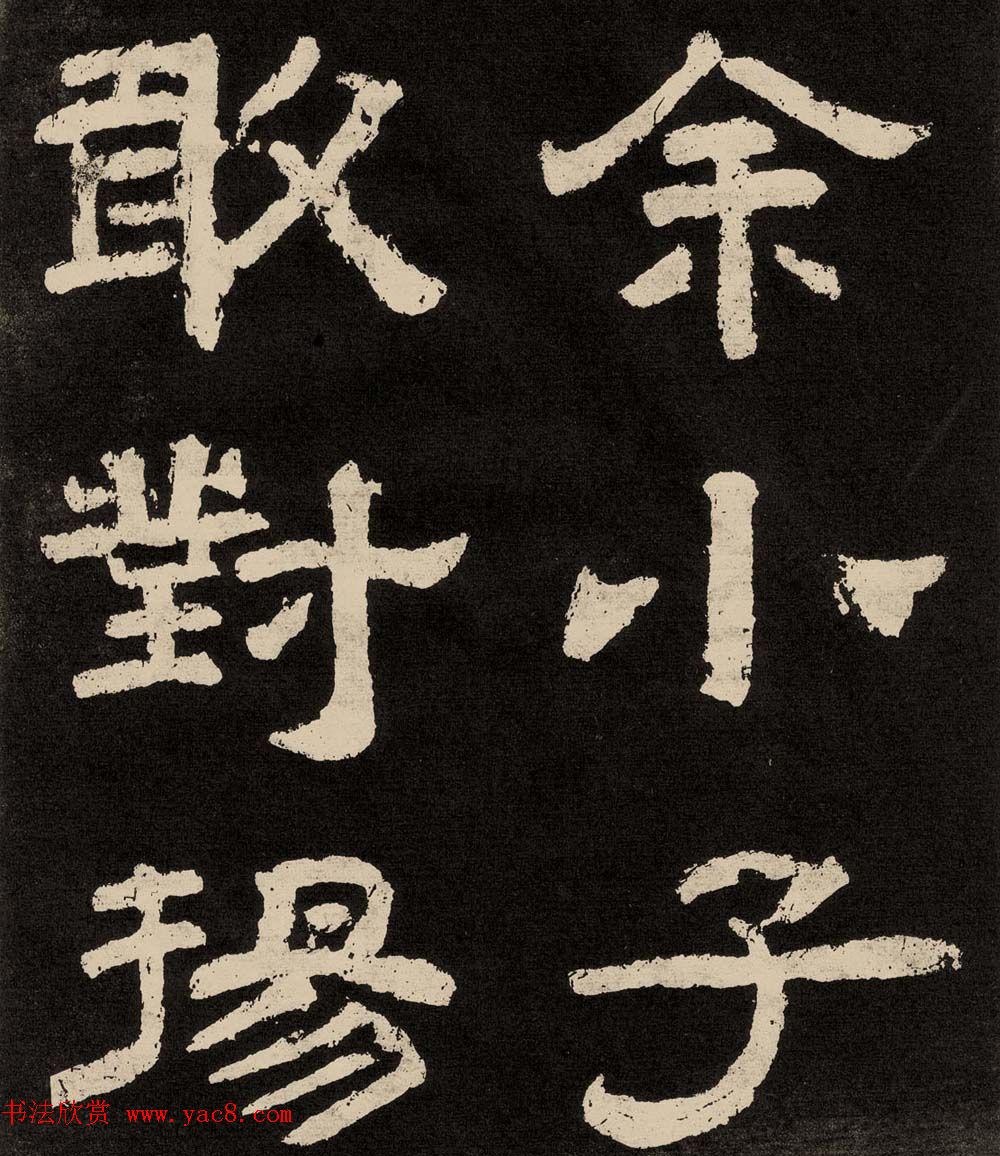 余小子
敢對揚
书法欣赏 www.yac8.com